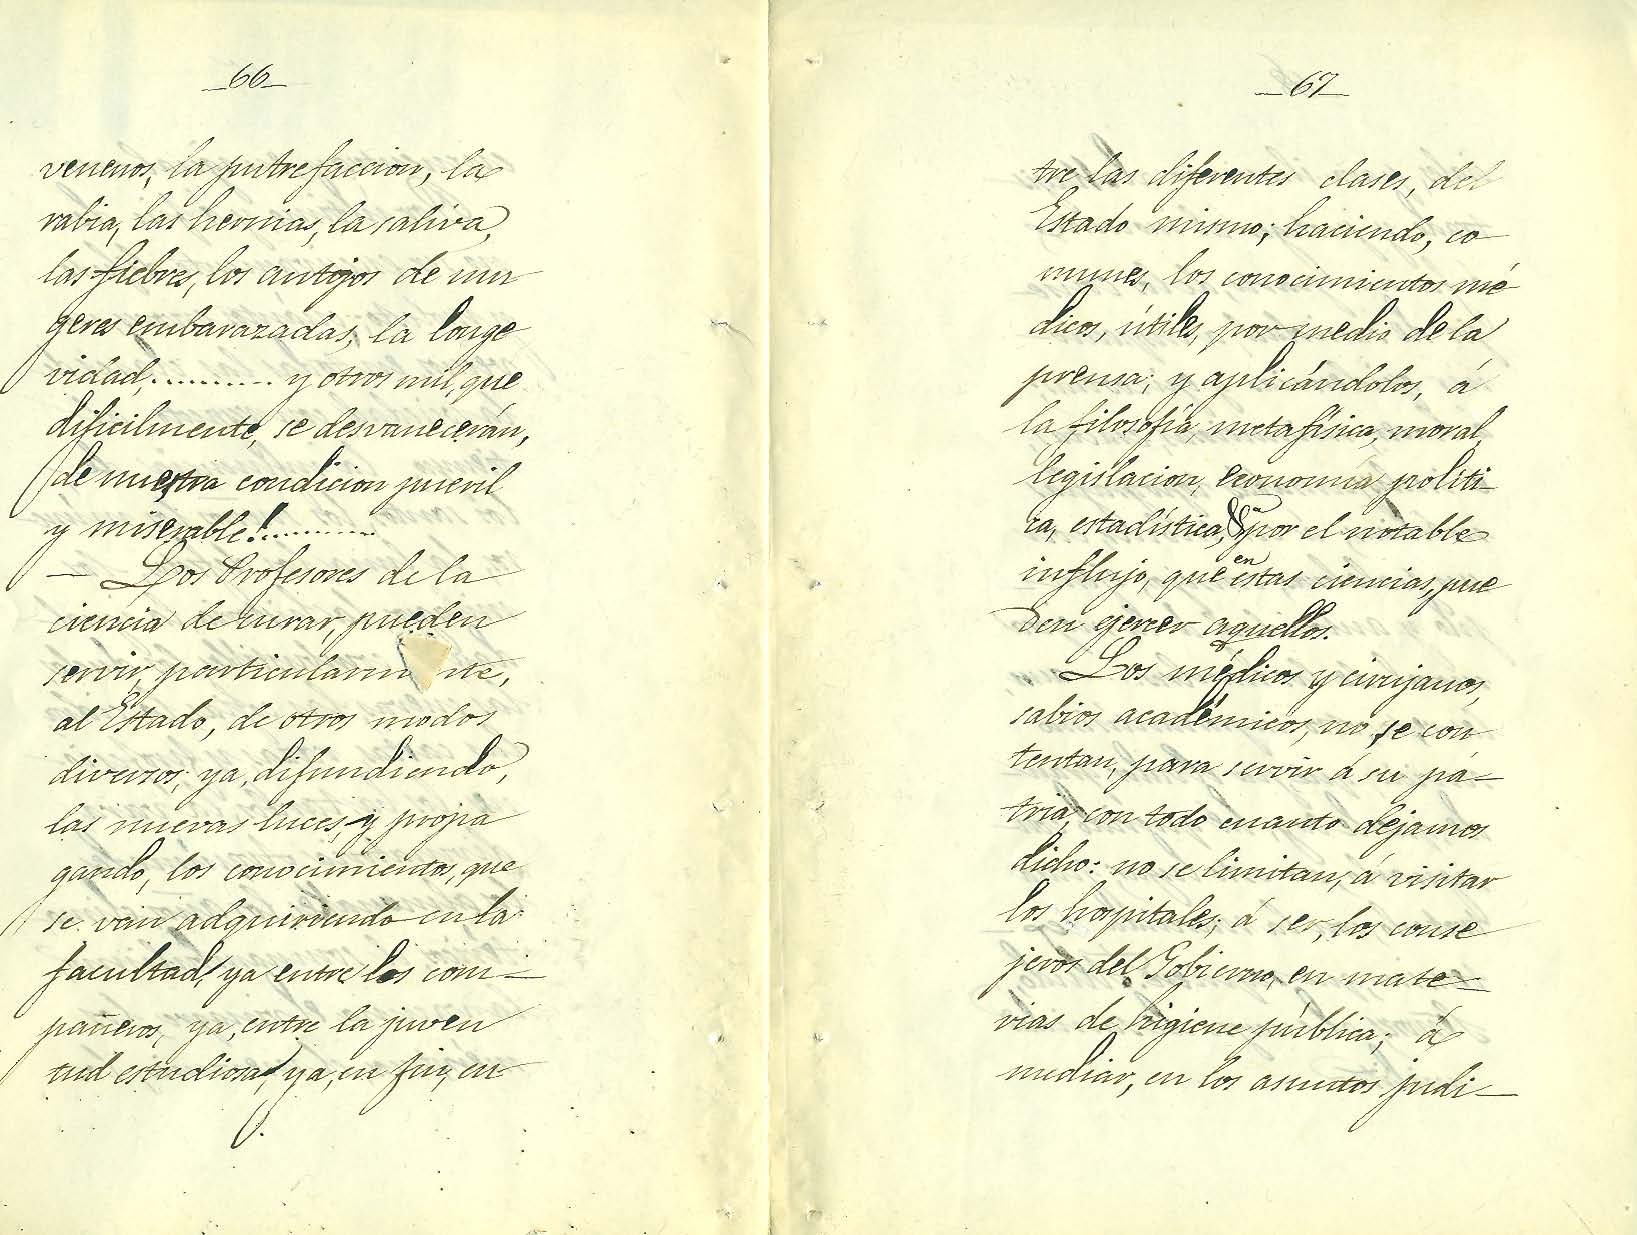 _66_
venenos, la putrefaccion, la
rabia, las hernias, la saliva,
las fiebres, los antojos de mu
geres embarazadas, la longe
vidad,........... y otros mil, que
dificilmente, se desvanecerán,
de nuestra condicion pueril
y miserable!...........
— Los Profesores de la
ciencia de curar, pueden
servir, particularm nte,
al Estado, de otros modos
diversos; ya, difundiendo,
las nuevas luces, y propa
gando, los conocimientos, que
se van adquiriendo en la
facultad, ya entre los com-
pañeros, ya, entre la juven
tud estudiosa, ya, en fin, en
_67_
tre las diferentes clases, del
Estado mismo; haciendo, co
munes, los conocimientos mé
dicos, útiles, por medio de la
prensa; y aplicándolos, á
la filosofía, metafísica, moral,
legislacion, economía políti-
ca, estadística, &ª por el notable
influjo, que en estas ciencias, pue
den ejercer aquellos.
Los médicos y cirujanos,
sabios académicos, no se con
tentan, para servir á su pá-
tria, con todo cuanto dejamos
dicho: no se limitan, á visitar
los hospitales; á ser, los conse
jeros del Gobierno, en mate-
rias de higiene pública; á
mediar, en los asuntos judi-